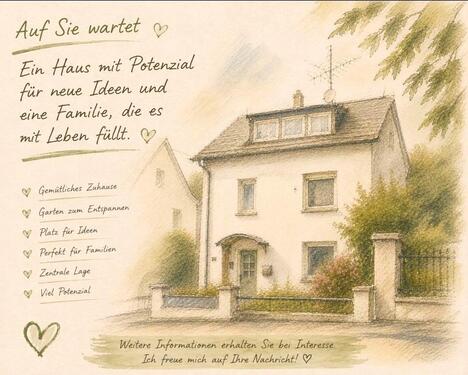 Auf Sie wartet
Ein Haus mit Potenzial
für neue Ideen und
eine Familie, die es
mit Leben füllt.
Gemütliches Zuhause
Garten zum Entspannen
Platz für Ideen
Perfekt für Familien
Zentrale Lage
Viel Potenzial
Weitere Informationen erhalten Sie bei Interesse.
Ich freue mich auf Ihre Nachricht!